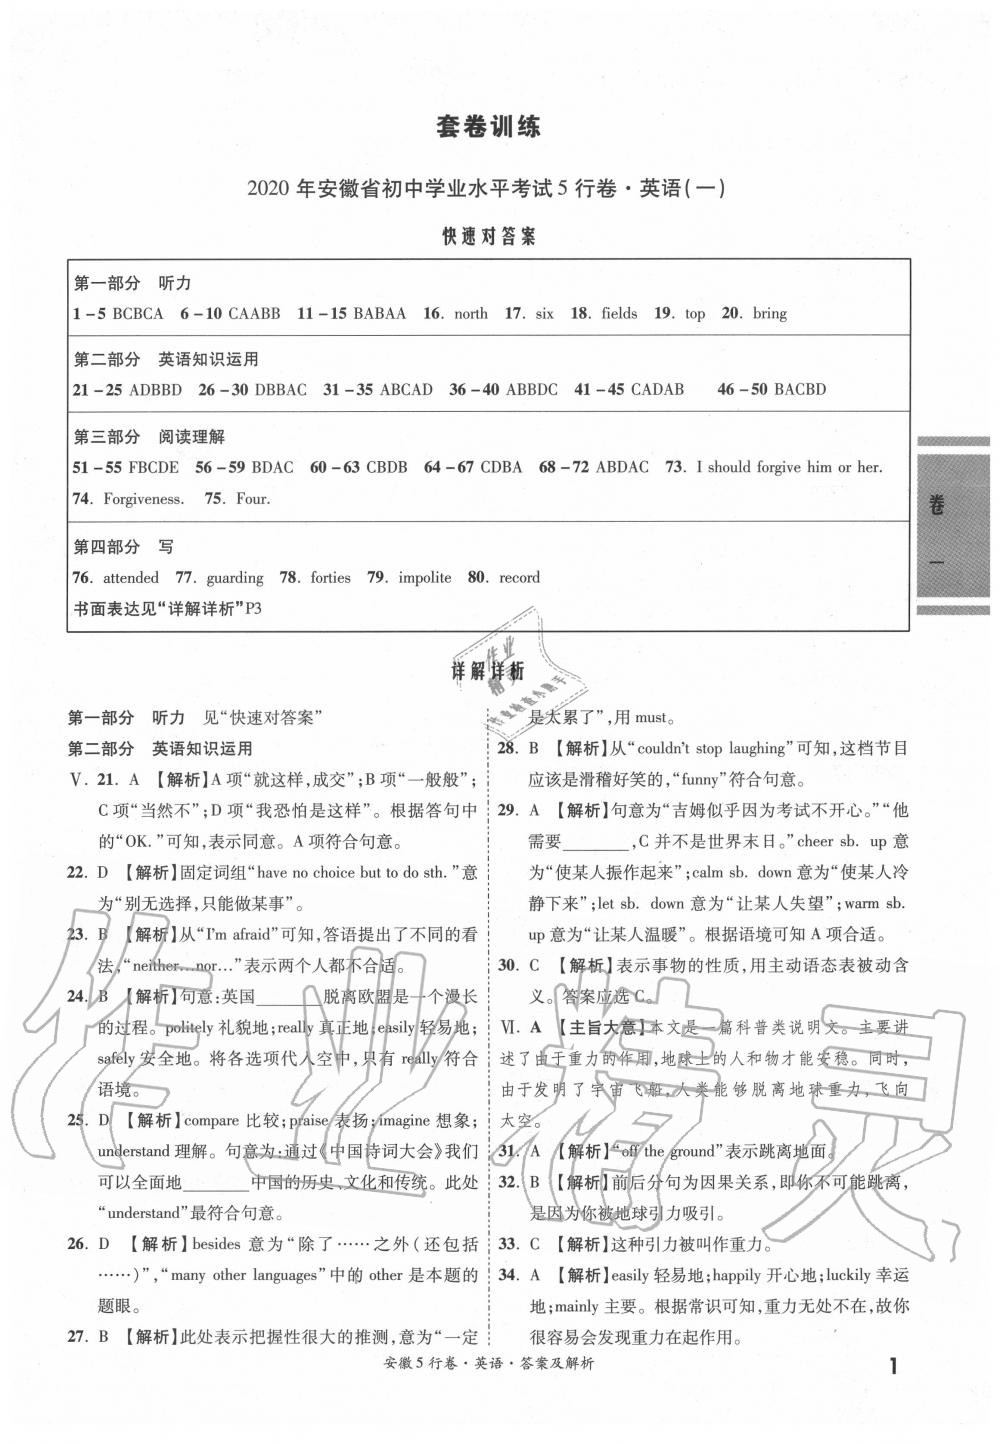 套卷训练
2020年安徽省初中学业水平考试5行卷·英语(一)
快速对答案
第一部分 听力
1-5 BCBCA 6-10 CAABB 11-15 BABAA 16. north 17. six 18. fields 19. top 20. bring
第二部分 英语知识运用
21-25 ADBBD 26-30 DBBAC 31-35 ABCAD 36-40 ABBDC 41-45 CADAB 46-50 BACBD
第三部分 阅读理解
51-55 FBCDE 56-59 BDAC 60-63 CBDB 64-67 CDBA 68-72 ABDAC 73. I should forgive him or her.
74. Forgiveness. 75. Four.
第四部分 写
76. attended 77. guarding 78. forties 79. impolite 80. record
书面表达见“详解详析”P3
卷
一
详解详析
第一部分 听力 见“快速对答案”
第二部分 英语知识运用
Ⅴ. 21. A 【解析】A项“就这样,成交”;B项“一般般”;
C项“当然不”;D项“我恐怕是这样”。根据答句中
的“OK.”可知,表示同意。A项符合句意。
22. D 【解析】固定词组“have no choice but to do sth.”意
为“别无选择,只能做某事”。
23. B 【解析】从“I'm afraid”可知,答语提出了不同的看
法,“neither...nor...”表示两个人都不合适。
24. B 【解析】句意:英国______脱离欧盟是一个漫长
的过程。politely 礼貌地;really 真正地;easily 轻易地;
safely 安全地。将各选项代入空中,只有 really 符合
语境。
25. D 【解析】compare 比较;praise 表扬;imagine 想象;
understand 理解。句意为:通过《中国诗词大会》我们
可以全面地______中国的历史、文化和传统。此处
“understand”最符合句意。
26. D 【解析】besides 意为“除了……之外(还包括
……)”,“many other languages”中的 other 是本题的
题眼。
27. B 【解析】此处表示把握性很大的推测,意为“一定
是太累了”,用 must。
28. B 【解析】从“couldn't stop laughing”可知,这档节目
应该是滑稽好笑的,“funny”符合句意。
29. A 【解析】句意为“吉姆似乎因为考试不开心。”“他
需要______,C 并不是世界末日。”cheer sb. up 意
为“使某人振作起来”;calm sb. down 意为“使某人冷
静下来”;let sb. down 意为“让某人失望”;warm sb.
up 意为“让某人温暖”。根据语境可知 A 项合适。
30. C 【解析】表示事物的性质,用主动语态表被动含
义。答案应选 C。
Ⅵ. A 【主旨大意】本文是一篇科普类说明文。主要讲
述了由于重力的作用,地球上的人和物才能安稳。同时,
由于发明了宇宙飞船,人类能够脱离地球重力,飞向
太空。
31. A 【解析】“off the ground”表示跳离地面。
32. B 【解析】前后分句为因果关系,即你不可能跳离,
是因为你被地球引力吸引。
33. C 【解析】这种引力被叫作重力。
34. A 【解析】easily 轻易地;happily 开心地;luckily 幸运
地;mainly 主要。根据常识可知,重力无处不在,故你
很容易会发现重力在起作用。
安徽5行卷·英语·答案及解析
1
作业精灵